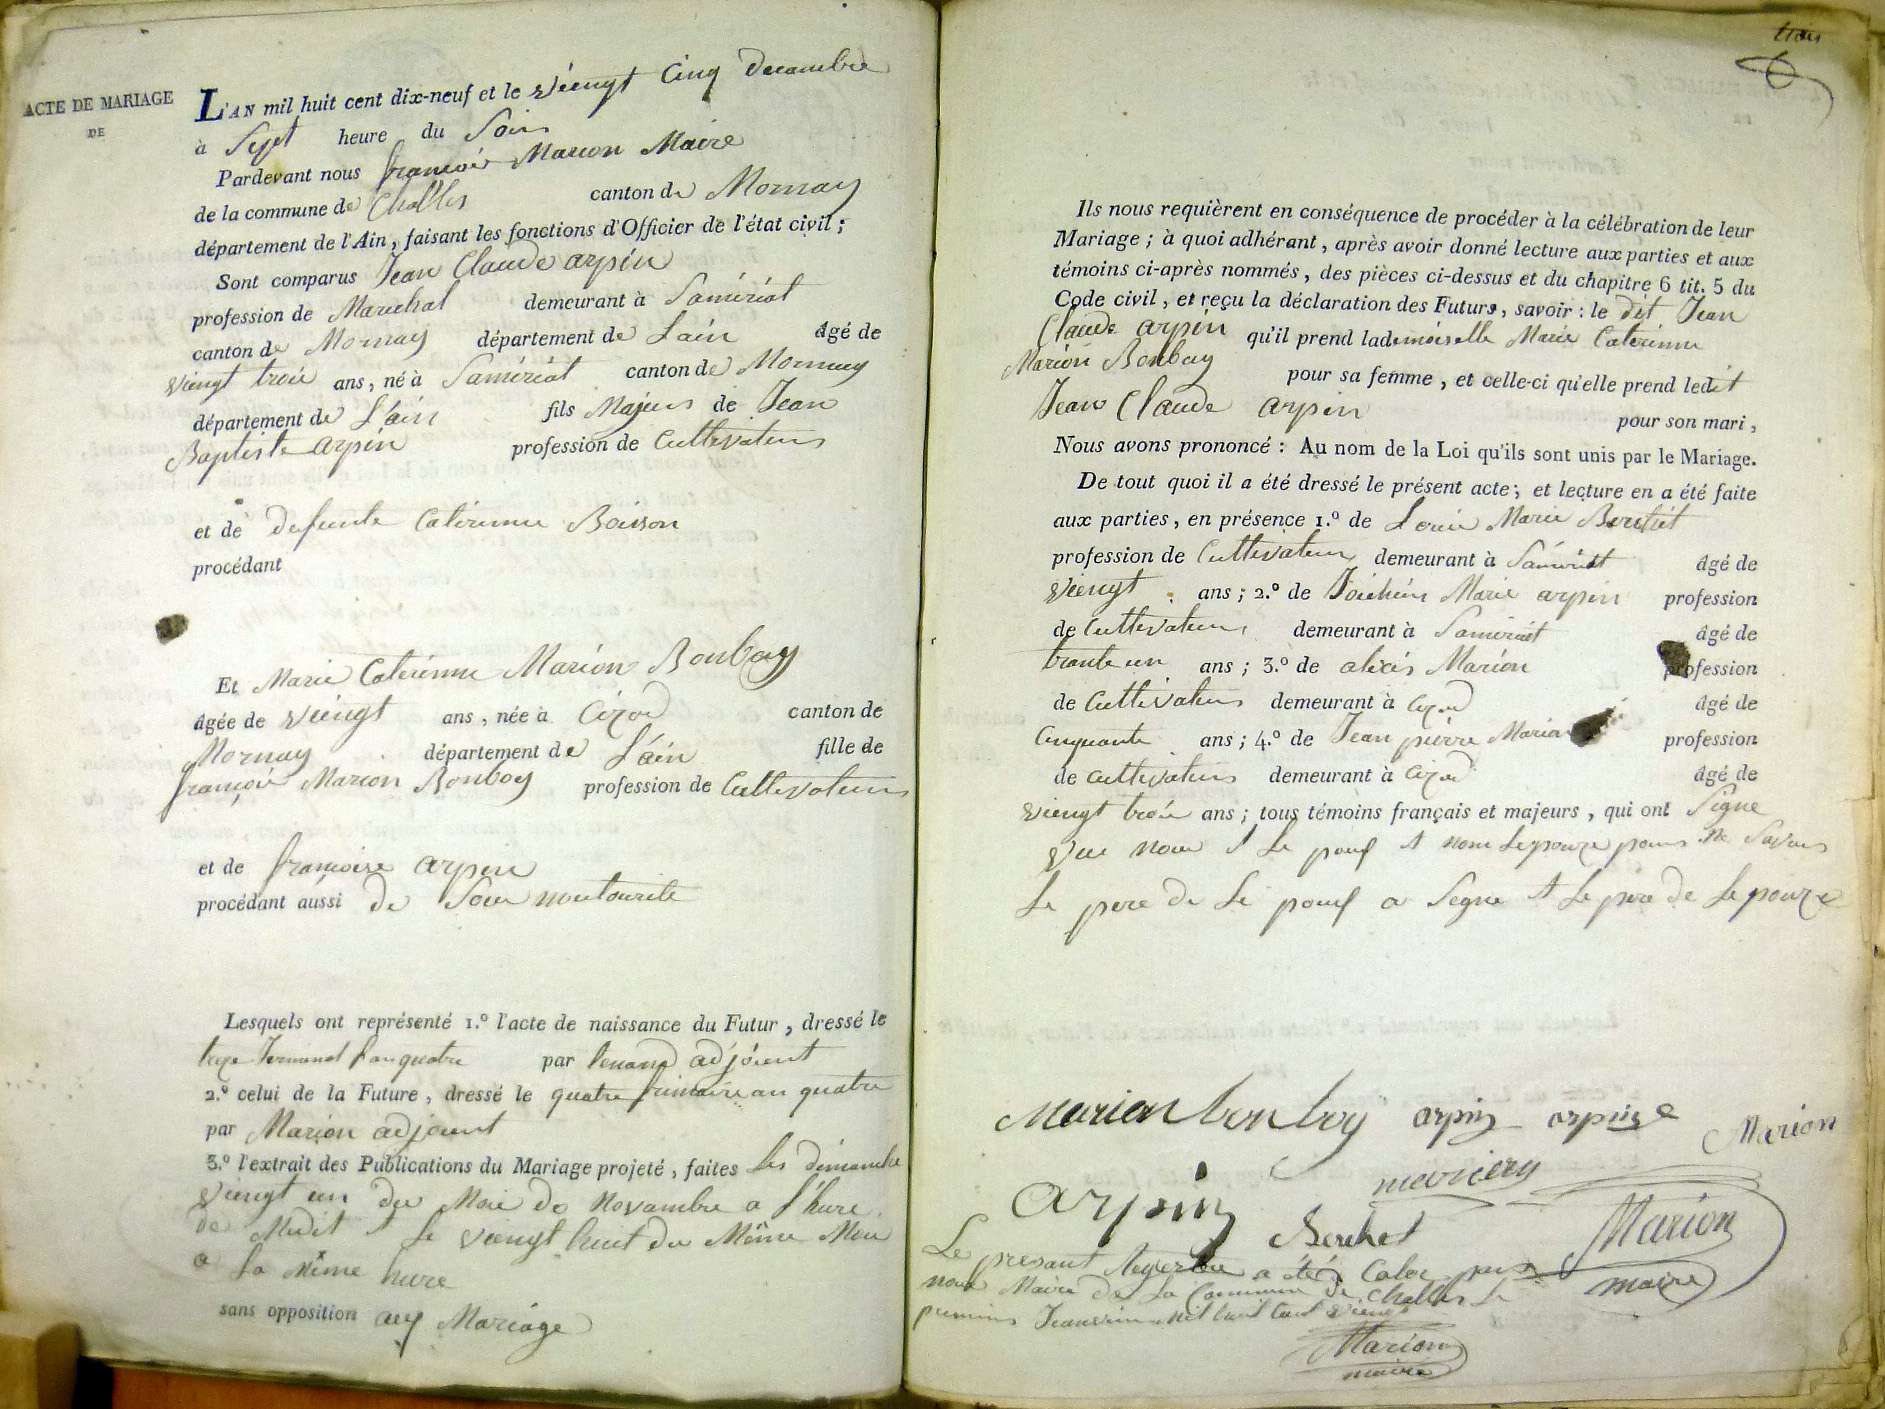 ACTE DE MARIAGE
DE
L'AN mil huit cent dix-neuf et le vieingt Cinq decambre
à Sept heure du Soir
Pardevant nous françois Marion Maire
de la commune de Challes canton de Mornay
département de l'Ain, faisant les fonctions d'Officier de l'état civil;
Sont comparus Jean Claude arpin
profession de Marechal demeurant à Samériat
canton de Mornay département de Lain âgé de
vieingt trois ans, né à Samériat canton de Mornay
département de L'ain fils Majeur de Jean
Baptiste arpin profession de Cultivateur
et de defunte Caterinne Boisson
procédant
Et Marie Caterinne Marion Bonboy
âgée de vieingt ans, née à Cizod canton de
Mornay département de L'ain fille de
françois Marion Bonboy profession de Cultivateur
et de francoise arpin
procédant aussi de Son
Lesquels ont représenté 1.º l'acte de naissance du Futur, dressé le
quatre par adjoint
2.º celui de la Future, dressé le quatre frimaire an quatre
par Marion adjoint
3.º l'extrait des Publications du Mariage projeté, faites Les dimanche
vieingt un du Moie de Novambre a l'hure
de Midit & Le vieingt huit du Même Moie
a La Même hure
sans opposition auf Mariage
trois
Ils nous requièrent en conséquence de procéder à la célébration de leur
Mariage; à quoi adhérant, après avoir donné lecture aux parties et aux
témoins ci-après nommés, des pièces ci-dessus et du chapitre 6 tit. 5 du
Code civil, et reçu la déclaration des Futurs, savoir: le dit Jean
Claude arpin qu'il prend lademoiselle Marie Caterinne
Marion Bonboy pour sa femme, et celle-ci qu'elle prend ledit
Jean Claude arpin pour son mari,
Nous avons prononcé: Au nom de la Loi qu'ils sont unis par le Mariage.
De tout quoi il a été dressé le présent acte; et lecture en a été faite
aux parties, en présence 1.º de Louis Marie Berthet
profession de Cultivateur demeurant à Samériat âgé de
vieingt ans; 2.º de Marie arpin profession
de Cultivateur demeurant à Samériat âgé de
trante un ans; 3.º de alexis Marion profession
de Cultivateur demeurant à Cizod âgé de
Cinquante ans; 4.º de Jean pierre Marion profession
de Cultivateur demeurant à Cizod âgé de
vieingt trois ans; tous témoins français et majeurs, qui ont Signe
nous & Le pouf & non Lepouze pour ne Savoir
Le pere de Le pouf a Segne & Le pere de Le pouze
Marion bonboy arpin arpin
Marion
arpin
Berthet
Marion
maire
Le presant Registre a été Calos par
nous Maire de La Commune de Challes Le
premier Janvrier Mil huit cent vieingt
Marion
maire